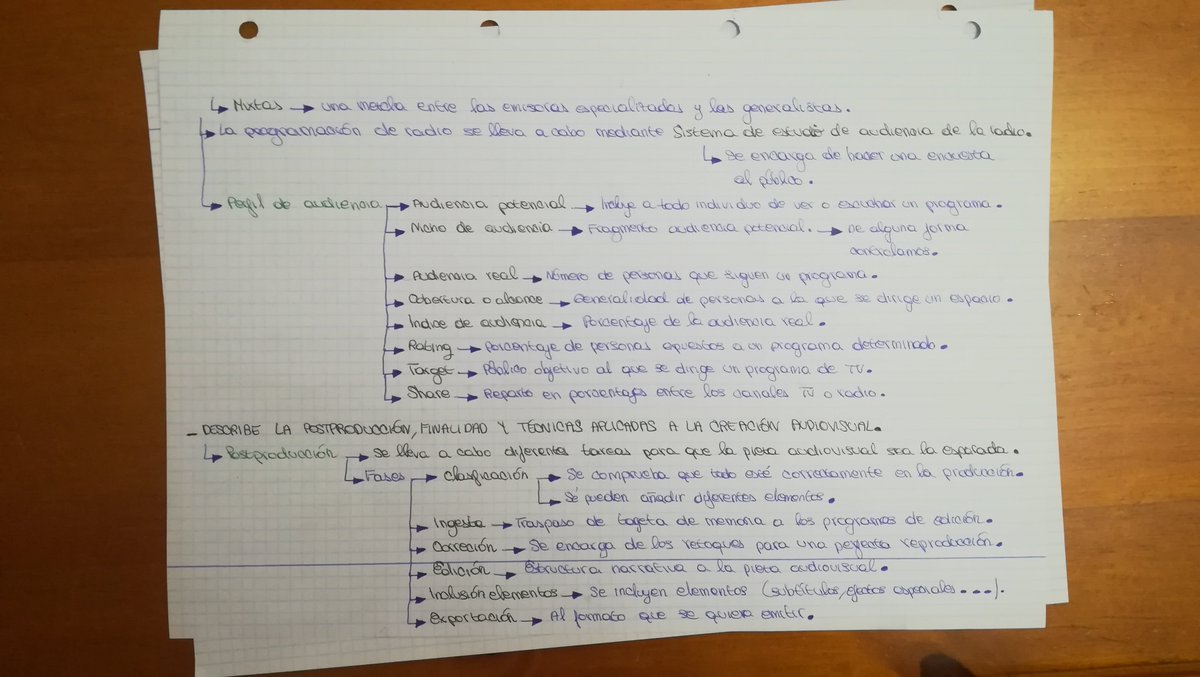 ↳ Mixtas → una mezcla entre las emisoras especializadas y las generalistas.
↳ La programación de radio se lleva a cabo mediante Sistema de estudio de audiencia de la radio.
↳ Se encarga de hacer una encuesta
al público.
↳ Perfil de audiencia → Audiencia potencial → Incluye a todo individuo de ver o escuchar un programa.
→ Nicho de audiencia → Fragmento audiencia potencial. → De alguna forma
controlamos.
→ Audiencia real → Número de personas que siguen un programa.
→ Cobertura o alcance → Generalidad de personas a la que se dirige un espacio.
→ Indice de audiencia → Porcentaje de la audiencia real.
→ Rating → Porcentaje de personas expuestos a un programa determinado.
→ Target → Público objetivo al que se dirige un programa de TV.
→ Share → Reparto en porcentajes entre los canales TV o radio.
_ DESCRIBE LA POSTPRODUCCIÓN, FINALIDAD Y TÉCNICAS APLICADAS A LA CREACIÓN AUDIOVISUAL.
↳ Postproducción → Se lleva a cabo diferentes tareas para que la pieza audiovisual sea la esperada.
↳ Fases → Clasificación → Se comprueba que todo esté correctamente en la producción.
→ Sé pueden añadir diferentes elementos.
→ Ingesta → Traspaso de tarjeta de memoria a los programas de edición.
→ Correción → Se encarga de los retoques para una perfecta reproducción.
→ Edición → Estructura narrativa a la pieza audiovisual.
→ Inclusión elementos → Se incluyen elementos (subtítulos, efectos especiales...).
→ Exportación → Al formato que se quiera emitir.